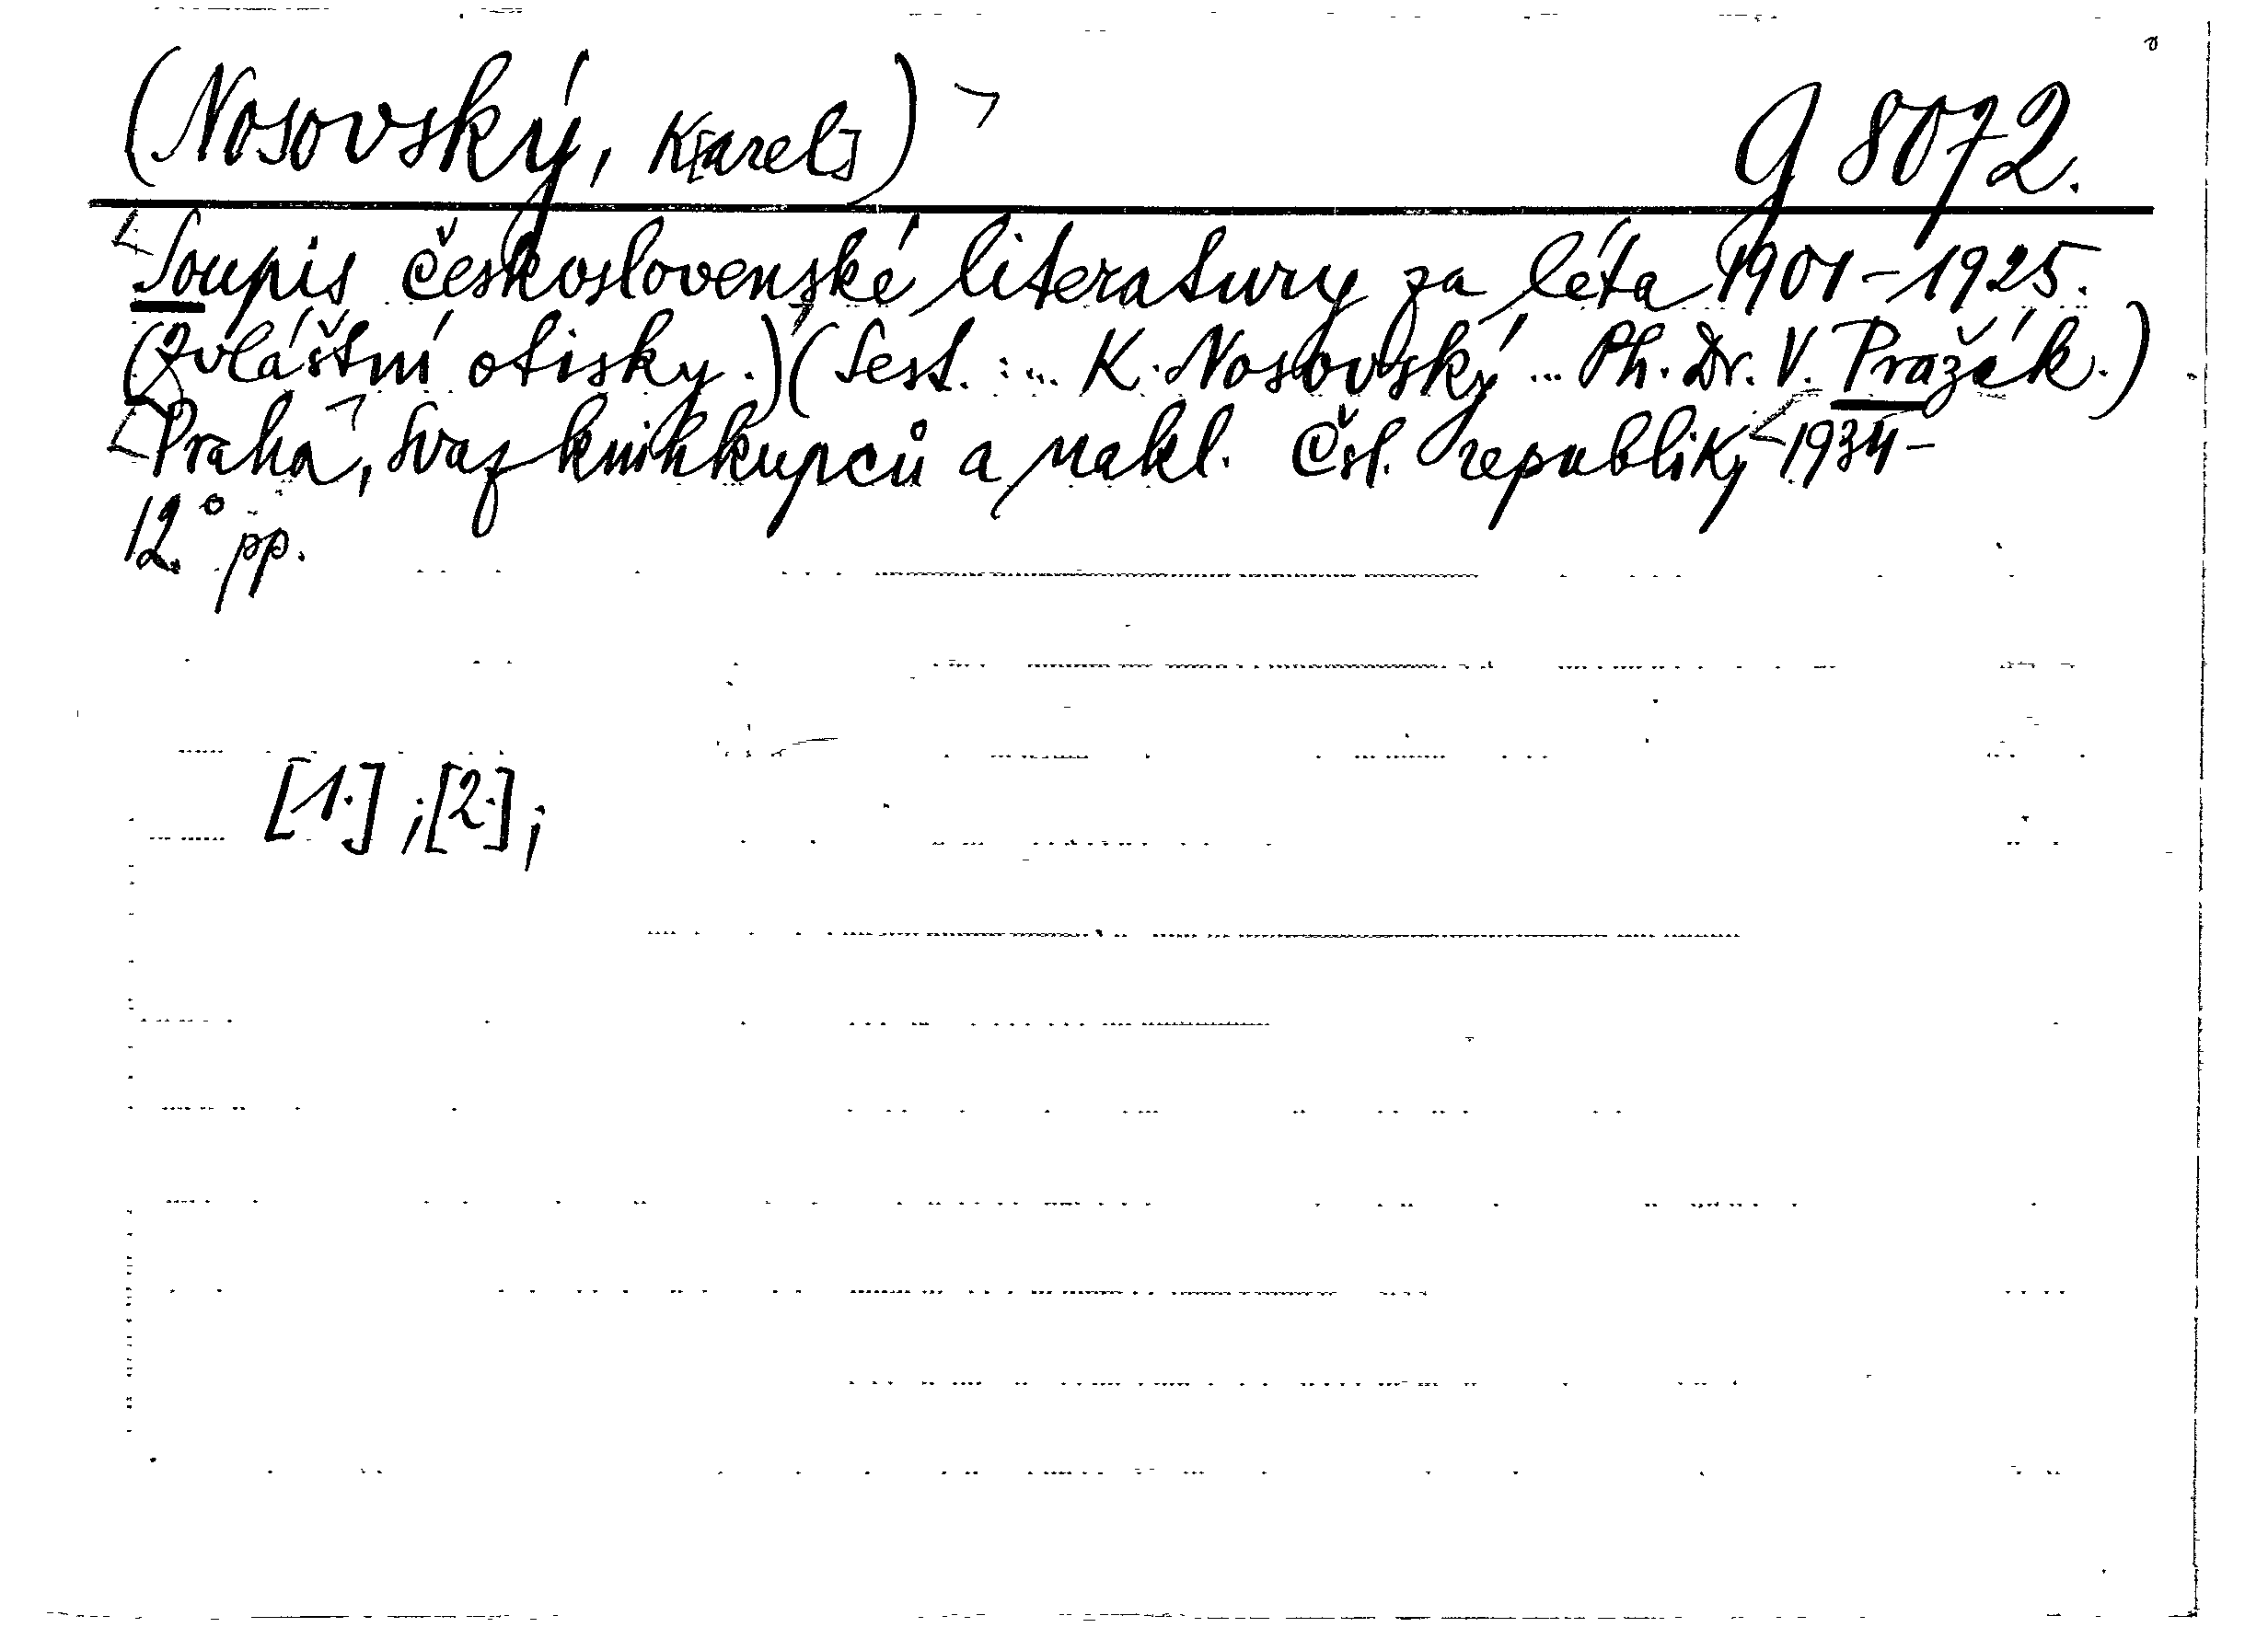 (Nosovský, K[arel]) G 8072.
Soupis československé literatury za léta 1901-1925.
(Zvláštní otisky.) (Sest. : ... K. Nosovský ... Ph. Dr. V. Pražák.)
Praha, Svaz knihkupců a nakl. Čsl. republiky 1934-
12.° pp.
[1.] ; [2.] ;